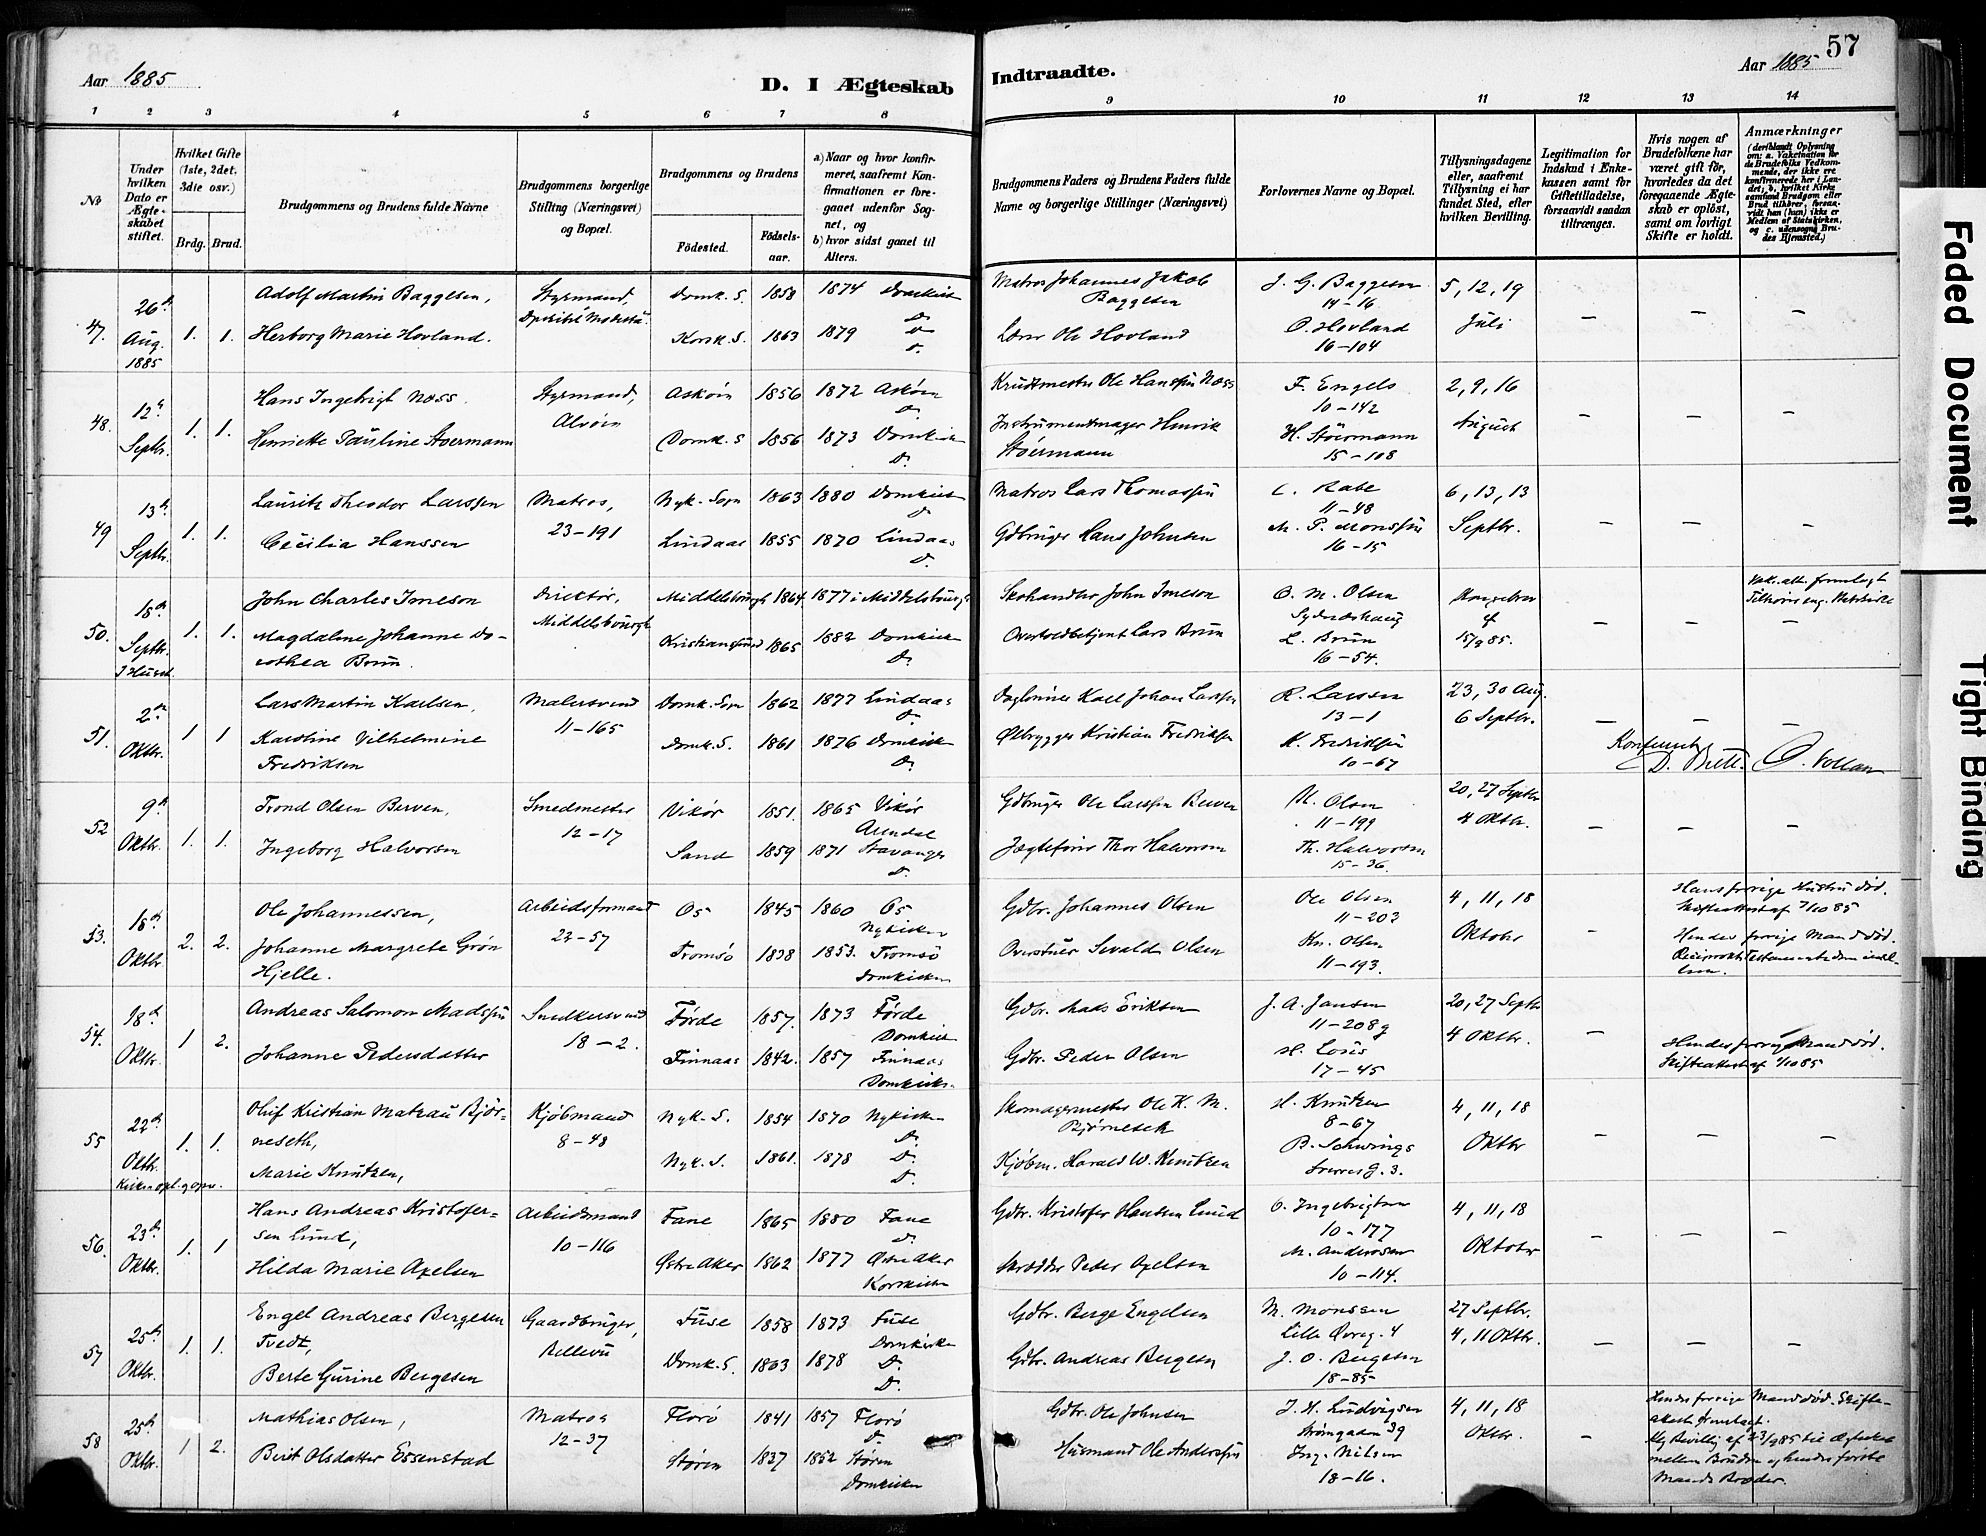 57
Aar 1885
D. I Ægteskab
Indtraadte.
Aar 1885
1 2 3 4 5 6 7 8 9 10 11 12 13 14
No
Under hvilken Dato er Ægteskabet stiftet.
Hvilket Gifte (1ste, 2det, 3die osv.)
Brdg. Brud.
Brudgommens og Brudens fulde Navne
Brudgommens borgerlige Stilling (Næringsvei) og Bopæl.
Brudgommens og Brudens
Fødested. Fødselsaar.
a) Naar og hvor konfirmeret, saafremt Konfirmationen er foregaaet udenfor Sognet, og
b) hvor sidst gaaet til Alters.
Brudgommens Faders og Brudens Faders fulde Navne og borgerlige Stillinger (Næringsvei)
Forlovernes Navne og Bopæl.
Tillysningsdagene eller, saafremt Tillysning ei har fundet Sted, efter hvilken Bevilling.
Legitimation for Indskud i Enkekassen samt for Giftetilladelse, forsaavidt saadan tiltrænges.
Hvis nogen af Brudefolkene har været gift før, hvorledes da det foregaaende Ægteskab er opløst, samt om lovligt Skifte er holdt.
Anmærkninger
(deriblandt Oplysning om: a. Vaksination for de Brudefolks Vedkommende, der ikke ere konfirmerede her i Landet; b. hvilket Kirkesamfund Brudgom eller Brud tilhører, forsaavidt han (hun) ikke er Medlem af Statskirken, og c. udensogns Brudes Hjemsted.)
47. 26de Aug. 1885 1. 1.
Adolf Martin Baggesen, Styrmand, Domk. S. 1858 1874 Domkirk D. Matros Johannes Jakob Baggesen J. G. Baggesen 14-16 5, 12, 19 Juli
Herborg Marie Hovland. Korsk. S. 1863 1879 D. D. Lærer Ole Hovland O. Hovland 16-104
48. 12te Septbr. 1. 1.
Hans Ingebrigt Næss. Styrmand, Alvøen Askøen 1856 1872 Askøen D. Krudtmester Ole Hanssen Næss F. Engels 10-142 2, 9, 16 August
Henriette Pauline Støermann Domk. S 1856 1873 Domkirk D. Instrumentmager Henrik Støermann H. Störmann 15-108
49 13de Septbr. 1. 1.
Lauritz Theodor Larssen Matros, 23-191 Nyk. Sogn 1863 1880 Domkirk D. Matros Lars Thomassen C. Rabe 11-48 6, 13, 13 Septbr.
Cecilia Hanssen Lindaas 1855 1870 Lindaas D. Gdbruger Hans Johnsen M. P. Monssen 16-15
50. 18de Septbr. I Huset 1. 1.
John Charles Imeson Direktør, Middelsbourgh Middelsbourgh 1864. 1877 i Middelsbourgh Skohandler John Imeson O. M. Olsen Sydnæshaug Kongebrev af 15/9 85.
Magdaline Johanne Dorothea Brun. Kristianssund 1865 1882 Domkirken D. Overtoldbetjent Lars Brun L. Brun 16-54.
51. 2den Oktbr. 1 1
Lars Martin Karlsen, Malersvend 11-165 Domk. Sogn 1862 1877 Lindaas D. Dagleiner Karl Johan Larssen R. Larsen 13-1 23, 30 Aug. 6 Septbr.
Karoline Vilhelmine Fredriksen Domk. S. 1861 1876 Domkirk D. Ølbrygger Kristian Fredriksen K. Fredriksen 10-67
52 9de Oktbr. 1. 1.
Trond Olsen Berven, Smedmester 12-17 Vikør 1851. 1865 Vikør Arendal Gdbruger Ole Larssen Berven M. Olsen 11-199 20, 27 Septbr 4 Oktbr.
Ingeborg Halvorsen Sand 1859 1871 Stavanger D. Jægtefører Thor Halvorsen Th. Halvorsen 15-36.
53. 18de Oktbr 2. 2.
Ole Johannessen, Arbeidsformand 22-57 Os 1845 1860 Os Nykirken Gdbr. Johannes Olsen Ole Olsen 11-203 4, 11, 18 Oktober Hans forrige Hustru død. Skifteattest af 7/10 85
Johanne Margrete Grøn Hjelle. Tromsø 1838 1853. Tromsø Domkirken Overstuer Sevald Olsen Kn. Olsen 11-193. Hendes forrige Mand død.
54. 18de Oktbr. 1 2.
Andreas Salomon Madssen Snedkersvend 18-2. Førde 1857. 1873 Førde Domkirk Gdbr. Mads Eriksen J. A. Jansen 11-208 g 20, 27 Septb 4 Oktbr.
Johanne Pedersdatter Finnaas 1842. 1857 Finnaas Domkirk. Gdbr. Peder Olsen H. Louis 17-45 Hendes forrige Mand død. Skifteattest af 1/10 85
55 22de Oktbr. 1. 1.
Oluf Kristian Matzau Bjørneseth, Kjøbmand 8-48 Nyk. S. 1854 1870 Nykirken D. Skomagermester Ole K. M. Bjørneseth H. Knutzen 8-67 4, 11, 18 Oktbr
Marie Knutzen, Nyk. S. 1861. 1878 D. D. Kjøbm. Harald W. Knutzen B. Schwings
56. 23de Oktbr. 1. 1
Hans Andreas Kristofersen Lund, Arbeidsmand 10-116 Fane 1865 1880 Fane D. Gdbr. Kristofer Hanssen Lund O. Ingebrigtsen 10-177 4, 11, 18 Oktober
Hilda Marie Axelsen Østre Aker 1862 1877 Østre Aker Korskirken Skrædder Peder Axelsen M. Andersen 10-114.
57 25de Oktbr. 1. 1.
Engel Andreas Bergesen Tvedt, Gaardbruger, Bellevu Fuse 1858 1873 Fuse Domkirken Gdbr. Berge Engelsen M. Monssen Lille Øvreg. 4 27 Septbr. 4, 11 Oktbr.
Berte Gurine Bergesen Domk. S. 1863 1878 D. D. Gdbr. Andreas Bergesen J. O. Bergesen 18-85
58 25de Oktbr. 1 2.
Mathias Olsen, Matros 12-37 Florø 1841 1857 Florø D. Gdbr. Ole Johnsen J. H. Ludvigsen Strømgaden 39 4, 11, 18 Oktbr. Hendes forrige Mand død. Skifteattest fremlagt.
Berit Olsdatter Essenstad Støren 1837 1852 Støren Domkirken Husmand Ole Anderssen Ing. Nilsen 18-16. Kgl Bevillg af 23/9 85 til Ægteskab mellem Bruden og hendes første Mands Broder.
Konfereret D. Brett. O. Vollan
Faded Document
Tight Binding